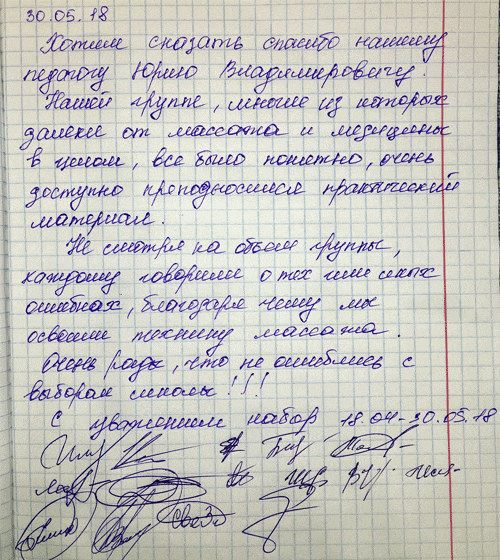 30.05.18
Хотим сказать спасибо нашему
педагогу Юрию Владимировичу.
Нашей группе, многие из которых
далеки от массажа и медицины
в целом, все было понятно, очень
доступно преподносился практический
материал.
Не смотря на объем группы,
каждому говорили о тех или иных
ошибках, благодаря чему мы
освоили технику массажа.
Очень рады, что не ошиблись с
выбором школы!!!
С уважением набор 18.04-30.05.18